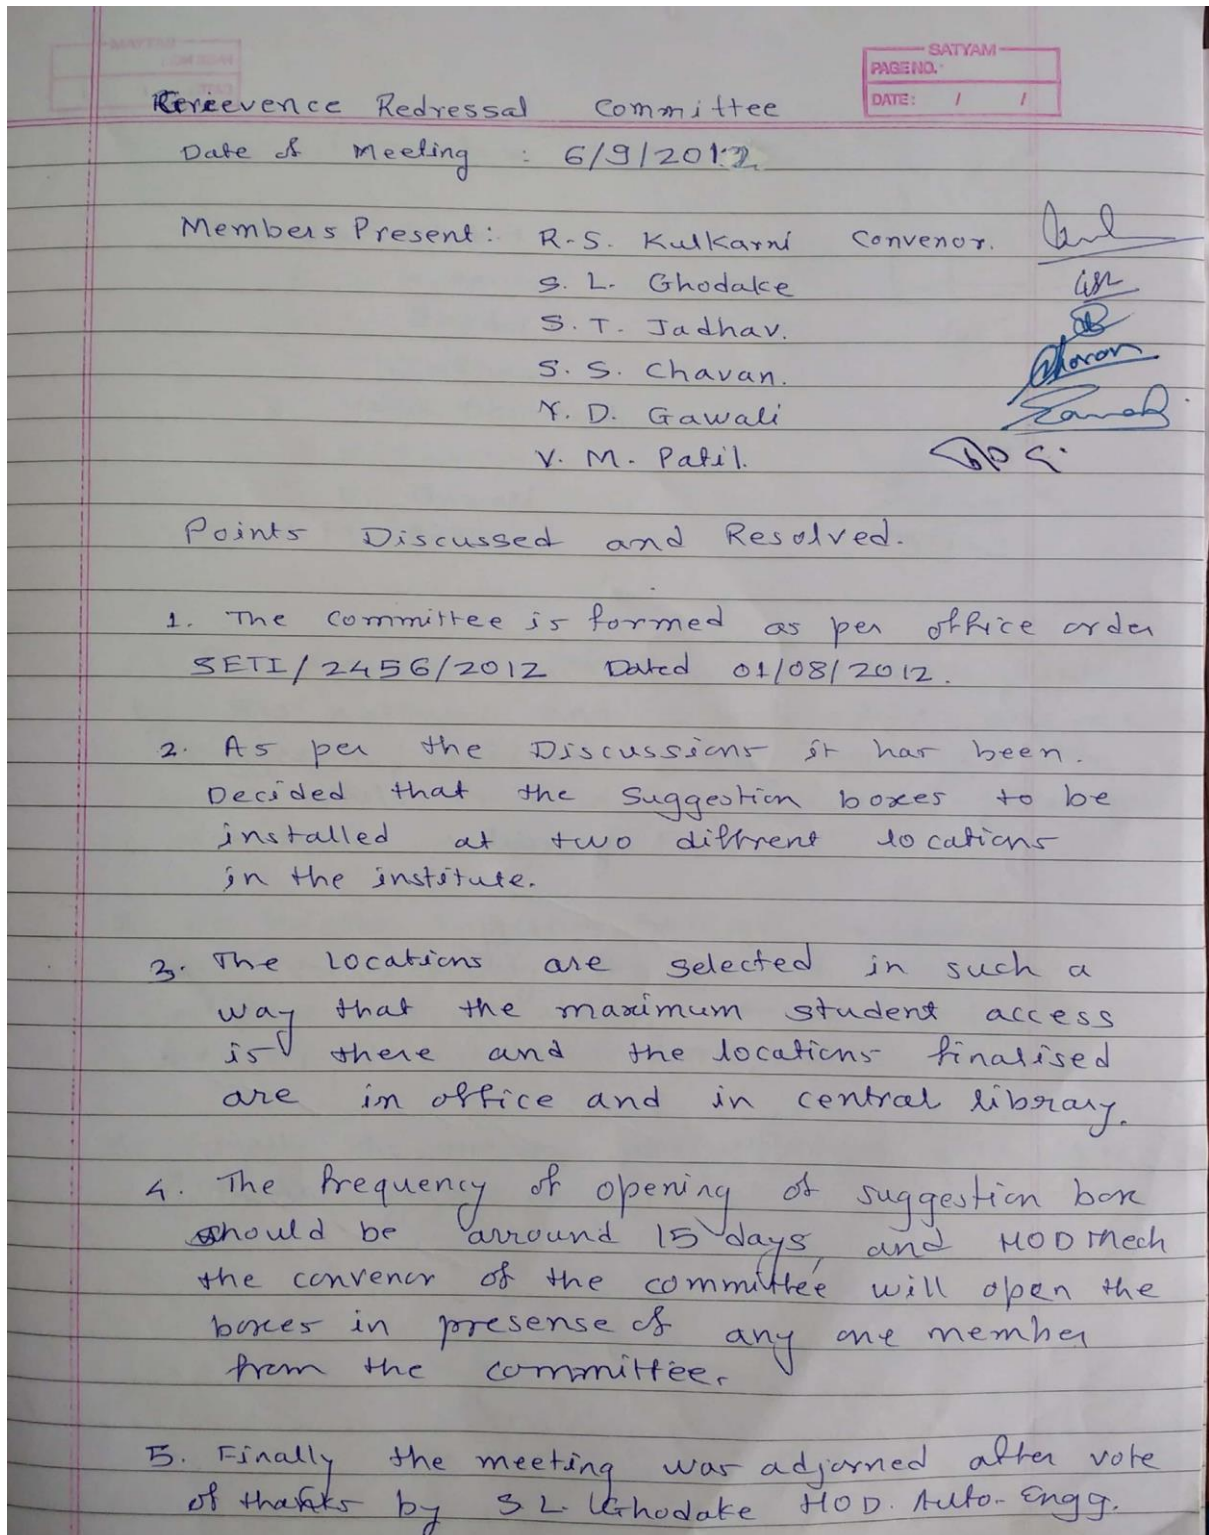 SATYAM
PAGE NO.
DATE: / /
Greevence Redressal Committee
Date of Meeting : 6/9/2012
Members Present : R.S. Kulkarni Convenor.
S. L. Ghodake
S. T. Jadhav.
S. S. Chavan.
Y. D. Gawali
V. M. Patil.
Points Discussed and Resolved.
1. The committee is formed as per office order
SETI/2456/2012 Dated 01/08/2012.
2. As per the Discussions it has been.
Decided that the Suggestion boxes to be
installed at two diffrent locations
in the institute.
3. The locations are selected in such a
way that the maximum student access
is there and the locations finalised
are in office and in central library.
4. The frequency of opening of suggestion box
should be arround 15 days, and HOD Mech
the convenor of the committee will open the
boxes in presense of any one member
from the committee.
5. Finally the meeting was adjorned after vote
of thanks by S L. Ghodake HOD. Auto. Engg.